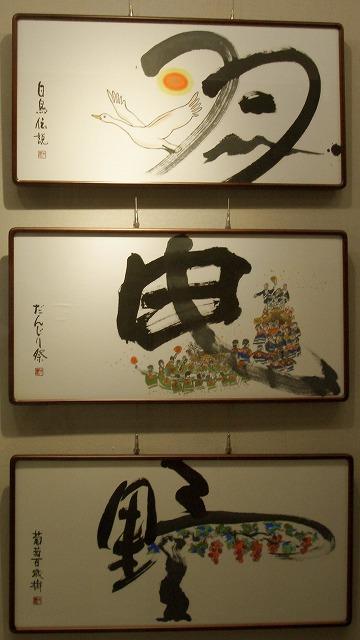 羽
白鳥伝説
曳
だんじり祭
野
葡萄